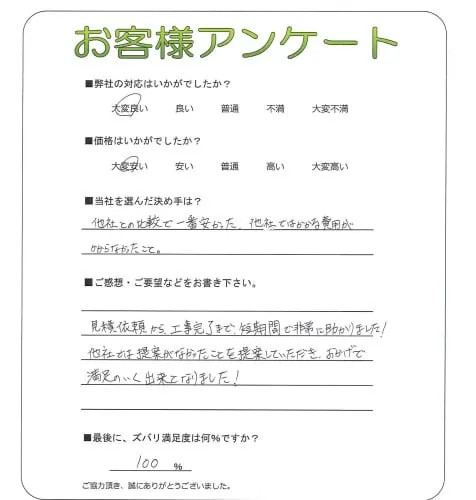 お客様アンケート
■弊社の対応はいかがでしたか？
大変良い 良い 普通 不満 大変不満
■価格はいかがでしたか？
大変安い 安い 普通 高い 大変高い
■当社を選んだ決め手は？
他社との比較で一番安かった、他社ではかかる費用が
かからなかったこと。
■ご感想・ご要望などをお書き下さい。
見積依頼から、工事完了まで、短期間で非常に助かりました！
他社では提案がなかったことを提案していただき、おかげで
満足のいく出来となりました！
■最後に、ズバリ満足度は何％ですか？
100 %
ご協力頂き、誠にありがとうございました。